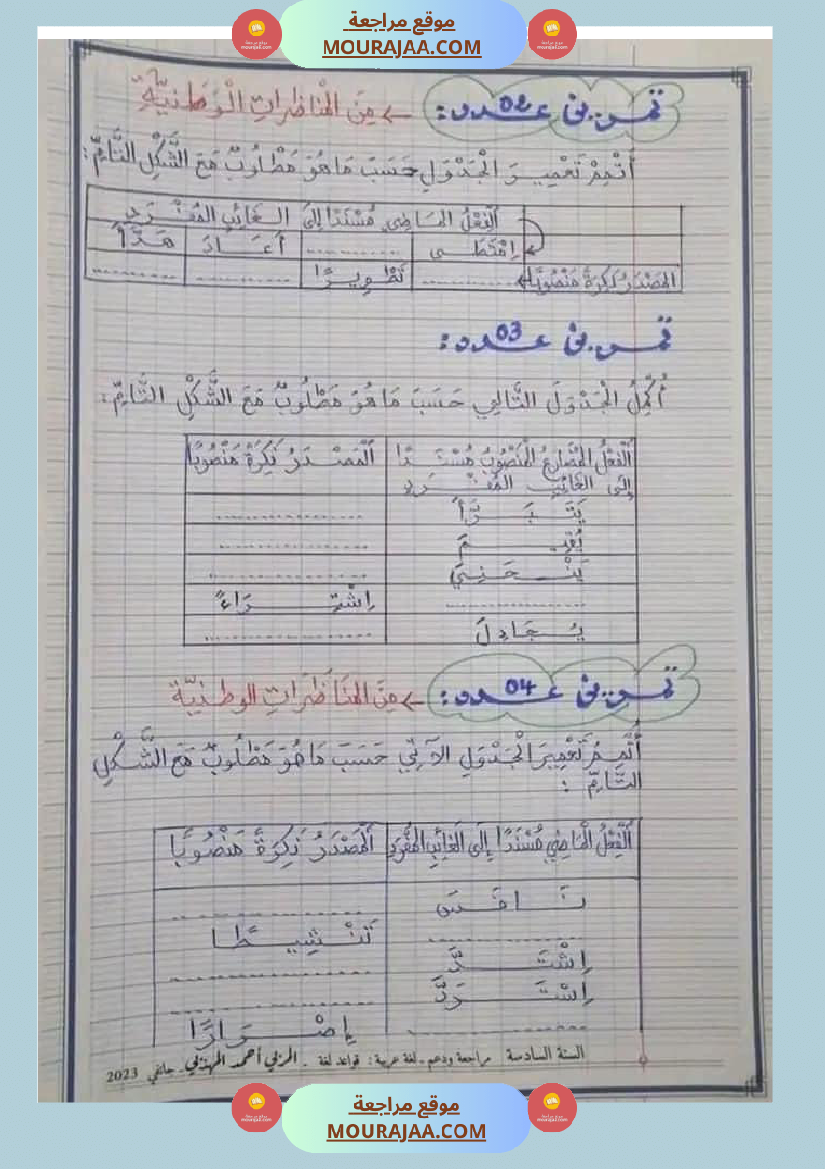 موقع مراجعة
MOURAJAA.COM
تمرين عدد 02: ← مِنَ الْمُنَاظَرَاتِ الْوَطَنِيَّةِ
أُتْمِمُ تَعْمِيرَ الْجَدْوَلِ حَسَبَ مَا هُوَ مَطْلُوبٌ مَعَ الشَّكْلِ التَّامِّ:
اَلْفِعْلُ المَاضِي مُسْنَدًا إِلَى الغَائِبِ المُفْرَدِ
اِقْتَضَى ............ أَعَادَ هَدَّأَ
المَصْدَرُ نَكِرَةً مَنْصُوبًا ............ تَطْوِيرًا ............ ............
تمرين عدد 03:
أُكْمِلُ الجَدْوَلَ التَّالِي حَسَبَ مَا هُوَ مَطْلُوبٌ مَعَ الشَّكْلِ التَّامِّ:
اَلْفِعْلُ المُضَارِعُ المَنْصُوبُ مُسْنَدًا إِلَى الغَائِبِ المُفْرَدِ اَلْمَصْدَرُ نَكِرَةً مَنْصُوبًا
يَتَبَرَّأَ ..................
يُقِيمَ ..................
يَنْحَنِيَ ..................
.................. اِشْتِرَاءً
يُجَادِلَ ..................
تمرين عدد 04: ← مِنَ المُنَاظَرَاتِ الوطنيّة
أُتْمِمُ تَعْمِيرَ الْجَدْوَلِ الآتِي حَسَبَ مَا هُوَ مَطْلُوبٌ مَعَ الشَّكْلِ
التَّامِّ :
اَلْفِعْلُ الْمَاضِي مُسْنَدًا إِلَى الْغَائِبِ الْمُفْرَدِ اَلْمَصْدَرُ نَكِرَةً مَنْصُوبًا
نَافَسَ ..................
.................. تَنْشِيطًا
اِشْتَدَّ ..................
اِسْتَرَدَّ ..................
.................. إِصْرَارًا
السنة السادسة مراجعة ودعم - لغة عربية: قواعد لغة - المربي أحمد المهذبي - جانفي 2023
موقع مراجعة
MOURAJAA.COM